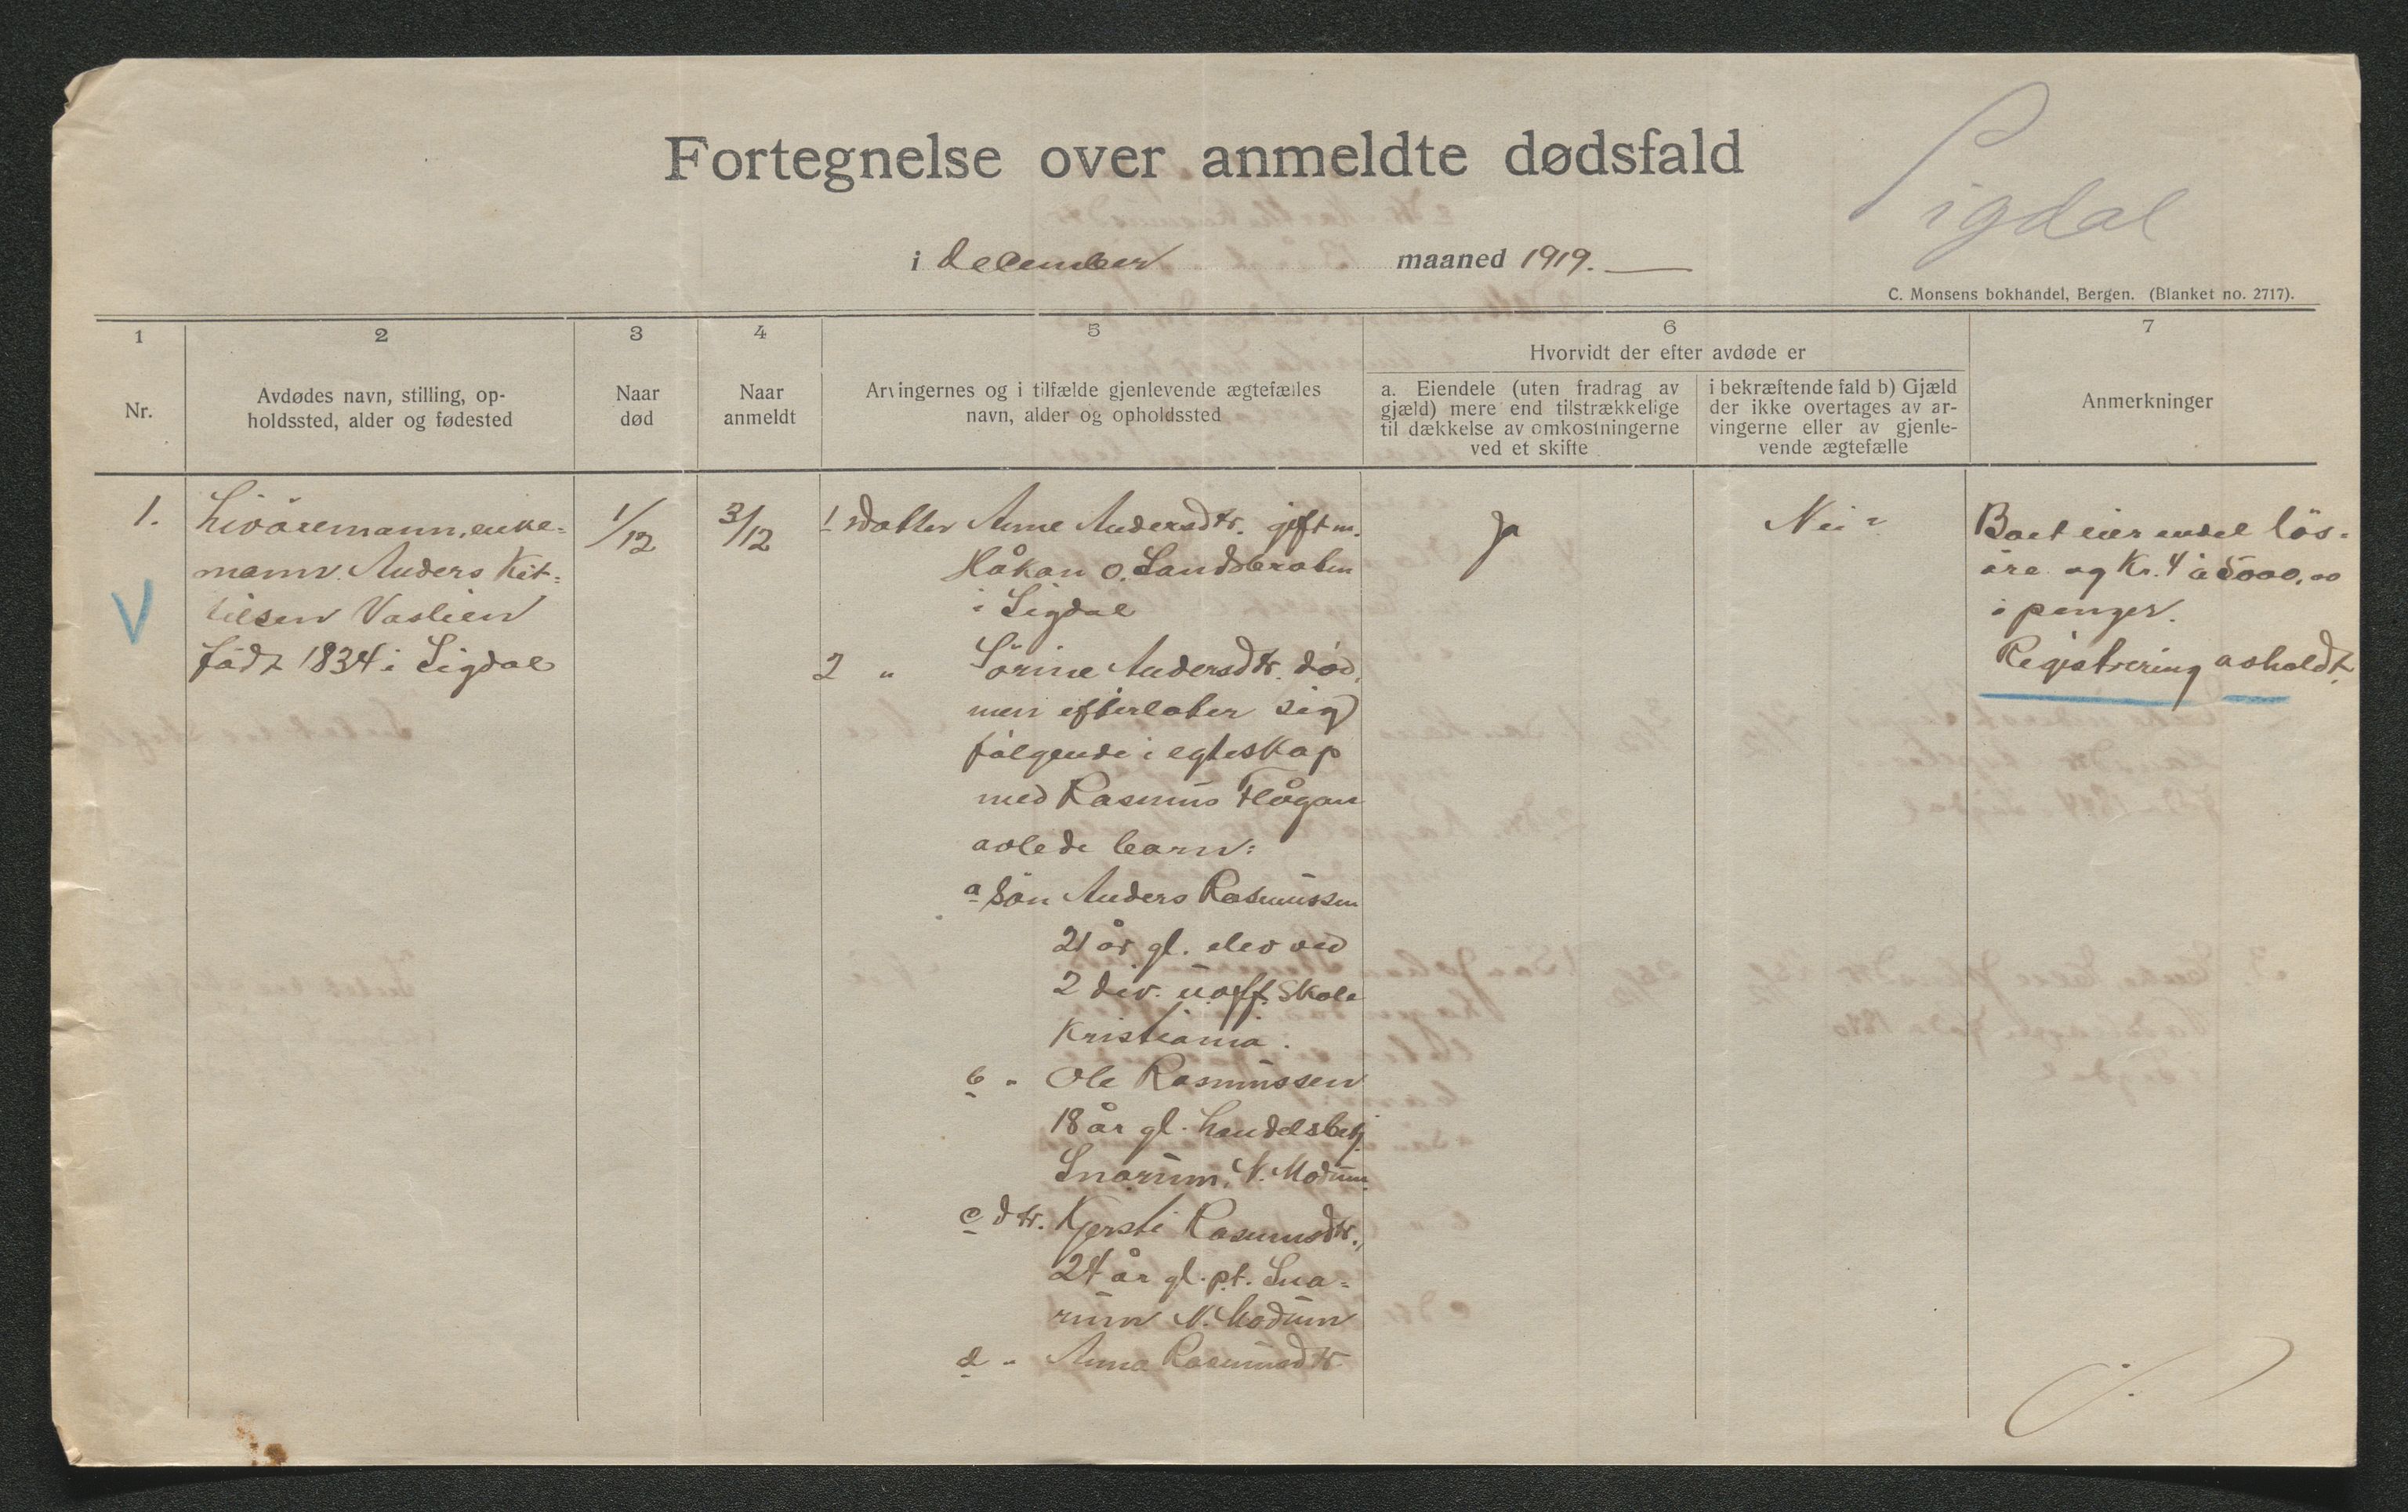 Sigdal
Fortegnelse over anmeldte dødsfald
i december maaned 1919.
C. Monsens bokhandel, Bergen. (Blanket no. 2717).
1
2
3
4
5
6
7
Nr.
Avdødes navn, stilling, op-
holdssted, alder og fødested
Naar
død
Naar
anmeldt
Arvingernes og i tilfælde gjenlevende ægtefælles
navn, alder og opholdssted
Hvorvidt der efter avdøde er
a. Eiendele (uten fradrag av
gjæld) mere end tilstrækkelige
til dækkelse av omkostningerne
ved et skifte
i bekræftende fald b) Gjæld
der ikke overtages av ar-
vingerne eller av gjenle-
vende ægtefælle
Anmerkninger
1.
Livöremann, enke=
mann. Anders Kit=
tilsen Vaslien
född 1834 i Sigdal
V
1/12
3/12
1 Datter Anne Andersdtr. gift m.
Håkan O.
i Sigdal
2 " Sörine Andersdtr. död,
men efterlater sig
fölgende i egteskap
med Rasmus Flågan
avlede barn:
a Sön Anders Rasmussen
21 år gl. elev ved
2 div. u.off. skole
Kristiania.
b " Ole Rasmussen
18 år gl. handelsbetj.
Snarum, N. Modum.
c dtr. Kjersti Rasmusdtr.,
24 år gl. pt. Sna=
rum N. Modum
d " Anna Rasmusdtr
Ja
Nei
Boet eier endel lös=
öre og Kr. 4 à 5000,00
i penger.
Registrering avholdt.